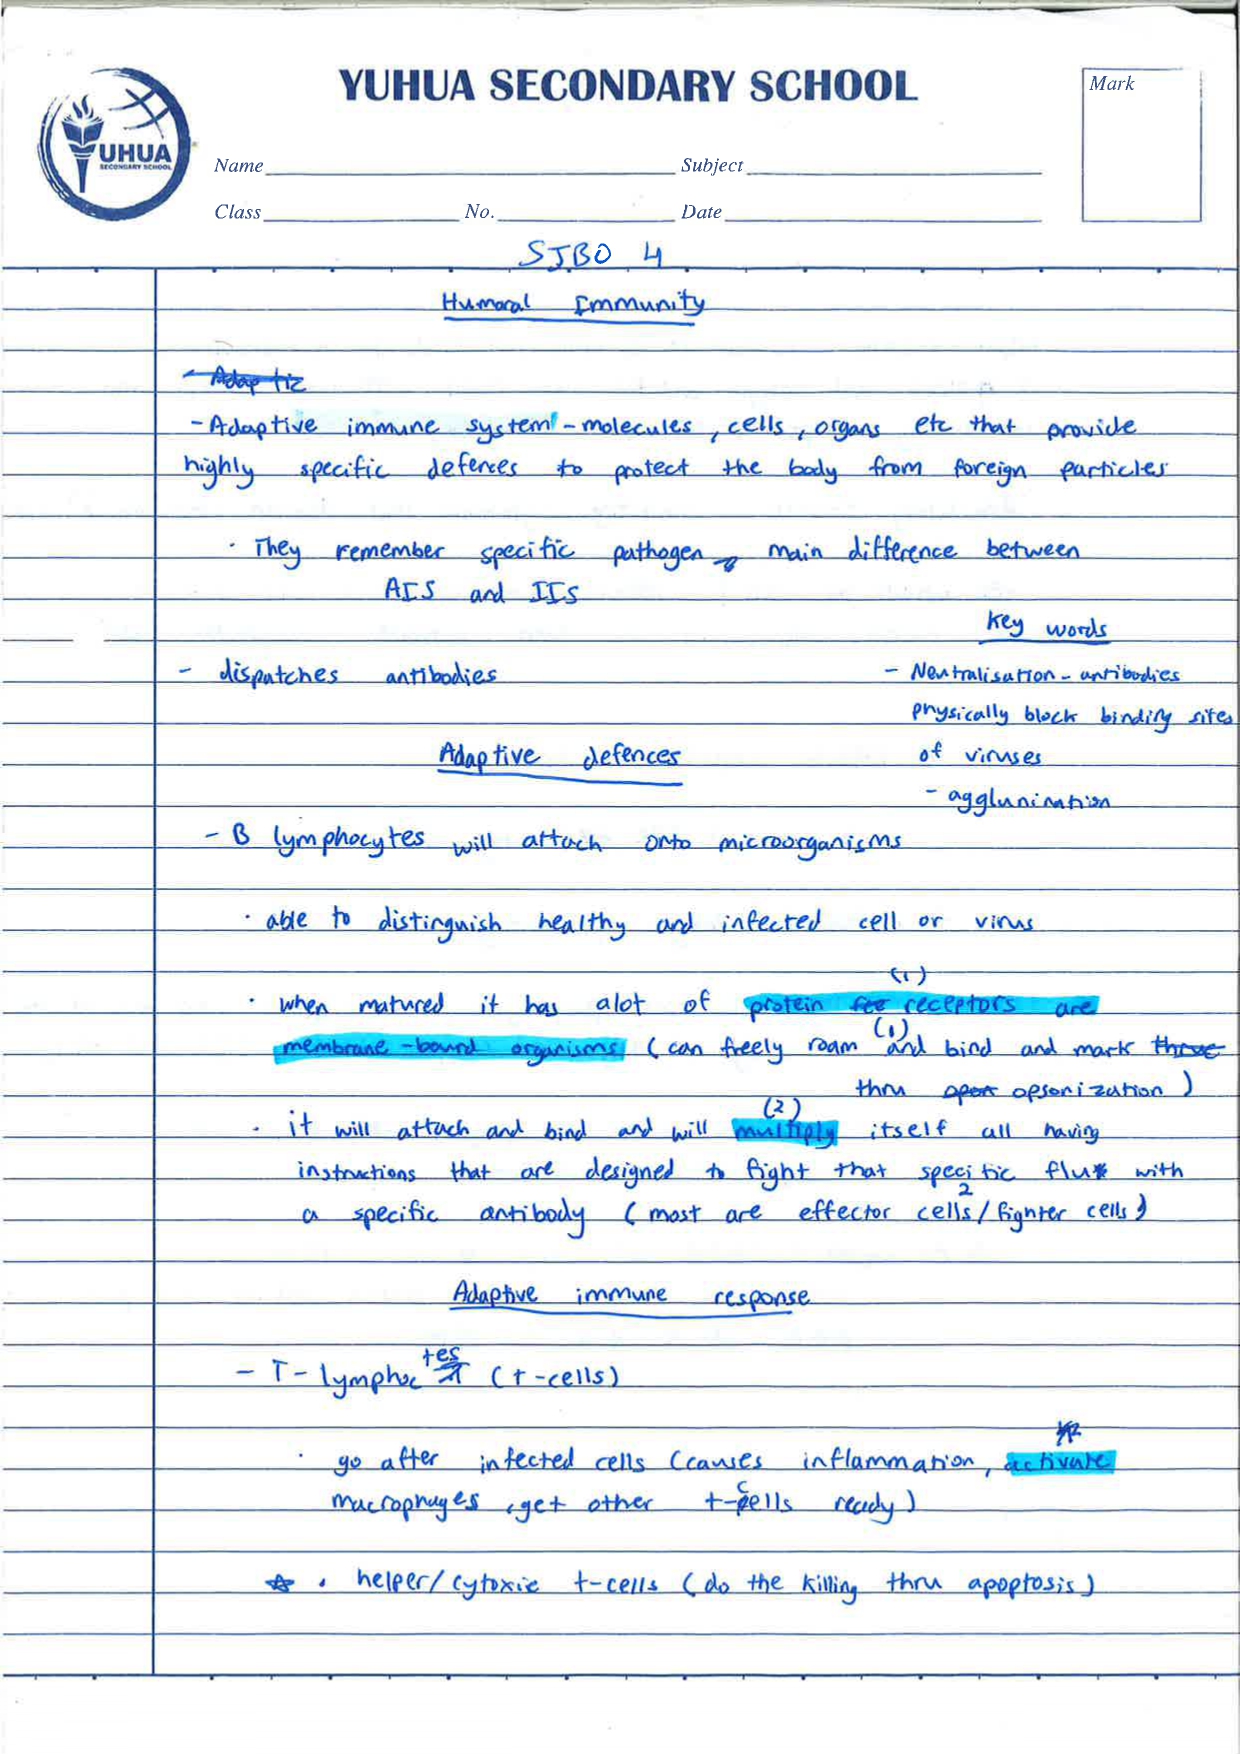 YUHUA SECONDARY SCHOOL
Mark
YUHUA
SECONDARY SCHOOL
Name Subject
Class No. Date
SJBO 4
Humoral Immunity
Adaptic
- Adaptive immune system - molecules, cells, organs etc that provide
highly specific defences to protect the body from foreign particles
· They remember specific pathogen, main difference between
AIS and IIS
Key words
- dispatches antibodies
- Neutralisation - antibodies
physically block binding sites
of viruses
- agglunination
Adaptive defences
- B lymphocytes will attach onto microorganisms
· able to distinguish healthy and infected cell or virus
(1)
· when matured it has alot of protein rec receptors are
membrane-bound organisms (can freely roam (1) and bind and mark
thru opsonization)
(2)
· it will attach and bind and will multiply itself all having
instructions that are designed to fight that specific flu with
a specific antibody (most are effector cells 2 / fighter cells)
Adaptive immune response
- T-lymphoctes (t-cells)
· go after infected cells (causes inflammation, activate
macrophages, get other t-cells ready)
☆ · helper/cytoxic t-cells (do the killing thru apoptosis)